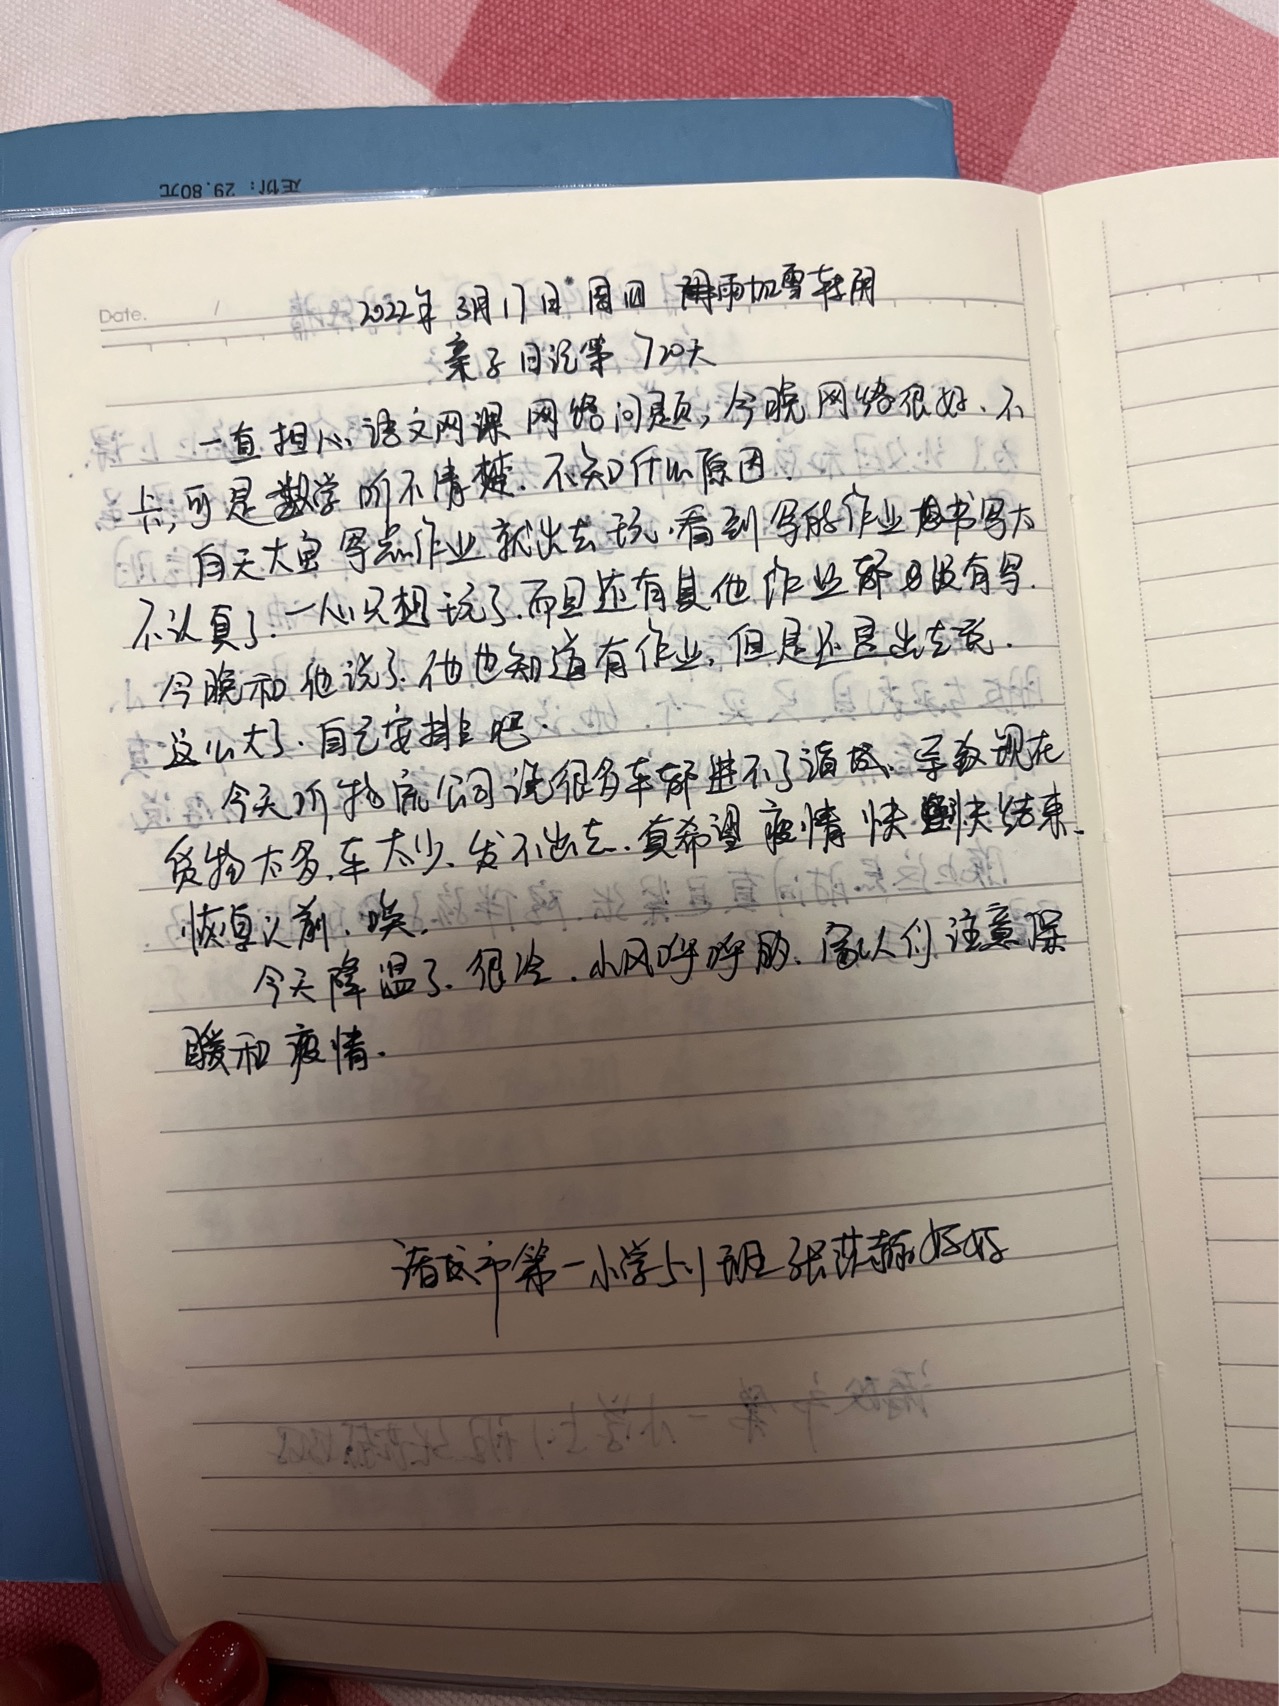 定价：29.80元
Date.
2022年 3月17日 周四 雨加雪转阴
亲子日记第720天
一直担心语文网课网络问题，今晚网络很好、不
卡，可是数学听不清楚．不知什么原因．
白天大鱼写点作业就出去玩．看到写的作业书写太
不认真了．一心只想玩了．而且还有其他作业都没有写．
今晚和他说了．他也知道有作业，但是还是出去玩．
这么大了．自己安排吧．
今天听物流公司说很多车都进不了诸城、导致现在
货物太多，车太少，发不出去．真希望疫情快快结束、
恢复以前．唉．
今天降温了．很冷．小风呼呼的、家人们注意保
暖和疫情．
诸城市第一小学5.1班张赫好好